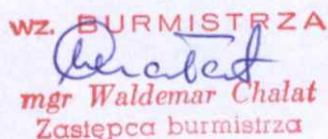 wz. BURMISTRZA
mgr Waldemar Chalat
Zastępca burmistrza